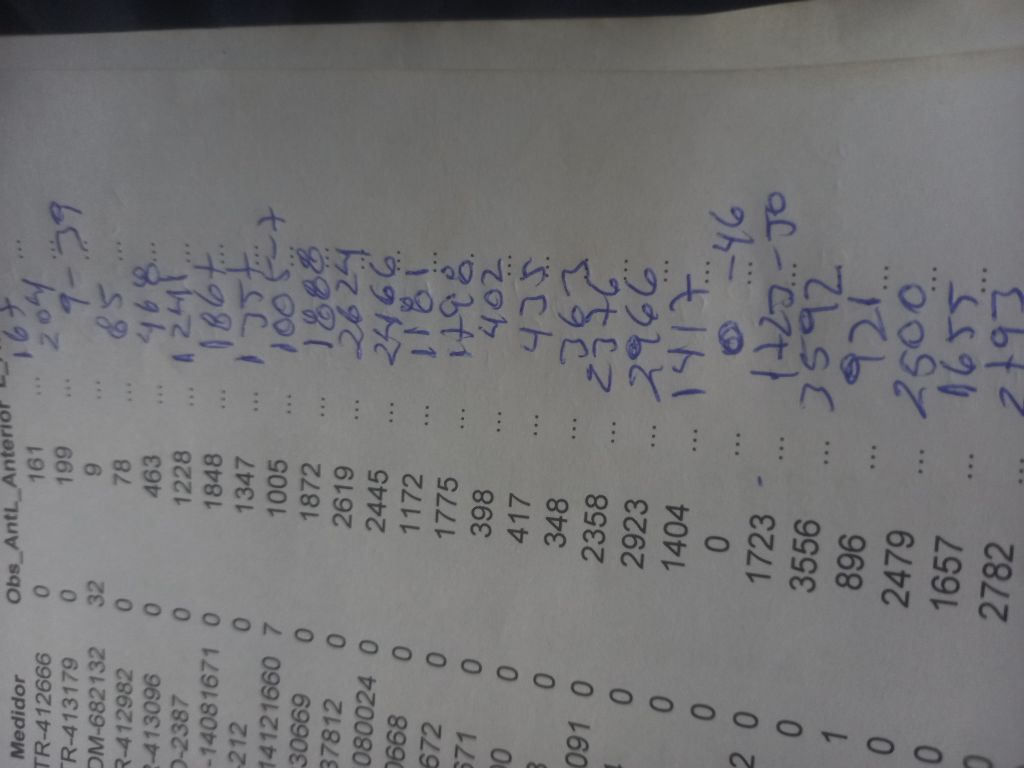 Medidor Obs_Ant L_Anterior
TR-412666 0 161 ... 167 ...
TR-413179 0 199 ... 204 ...
DM-682132 32 9 ... 9-39 ...
R-412982 0 78 ... 85 ...
R-413096 0 463 ... 468 ...
-23387 0 1228 ... 1241 ...
-14081671 0 1848 ... 1867 ...
-212 0 1347 ... 1357 ...
141121660 7 1005 ... 1005-7 ...
30669 0 1872 ... 1888 ...
37812 0 2619 ... 2624 ...
080024 0 2445 ... 2466 ...
0668 0 1172 ... 1181 ...
672 0 1775 ... 1798 ...
671 0 398 ... 402 ...
0 417 ... 435 ...
0 348 ... 363 ...
091 0 2358 ... 2376 ...
0 2923 ... 2966 ...
0 1404 ... 1417 ...
0 0 ... 0 -46
2 0 1723 ... 1725-50
0 3556 ... 3592
1 896 ... 921 ...
0 2479 ... 2500 ...
0 1657 ... 1655 ...
2782 ... 2793